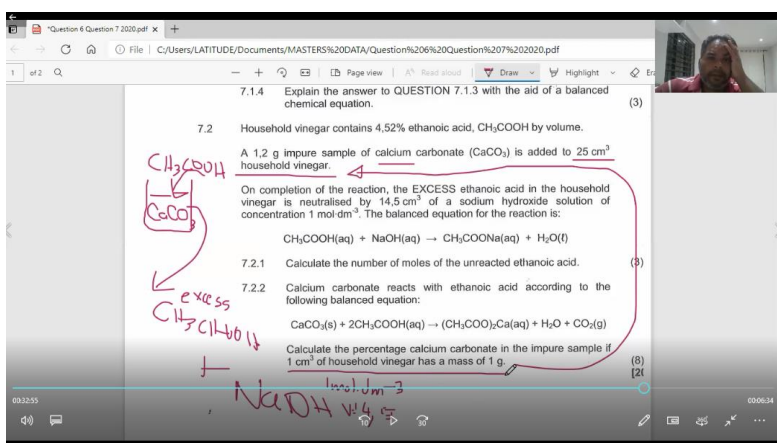 *Question 6 Question 7 2020.pdf
File | C:/Users/LATITUDE/Documents/MASTERS%20DATA/Question%206%20Question%207%202020.pdf
1 of 2 Page view Read aloud Draw Highlight
7.1.4 Explain the answer to QUESTION 7.1.3 with the aid of a balanced
chemical equation. (3)
7.2 Household vinegar contains 4,52% ethanoic acid, CH₃COOH by volume.
A 1,2 g impure sample of calcium carbonate (CaCO₃) is added to 25 cm³
household vinegar.
CH₃COOH
CaCO₃
On completion of the reaction, the EXCESS ethanoic acid in the household
vinegar is neutralised by 14,5 cm³ of a sodium hydroxide solution of
concentration 1 mol·dm⁻³. The balanced equation for the reaction is:
CH₃COOH(aq) + NaOH(aq) → CH₃COONa(aq) + H₂O(ℓ)
7.2.1 Calculate the number of moles of the unreacted ethanoic acid. (3)
7.2.2 Calcium carbonate reacts with ethanoic acid according to the
following balanced equation:
CaCO₃(s) + 2CH₃COOH(aq) → (CH₃COO)₂Ca(aq) + H₂O + CO₂(g)
Calculate the percentage calcium carbonate in the impure sample if
1 cm³ of household vinegar has a mass of 1 g. (8)
excess
+
NaOH
1mol.dm-3
00:32:55
00:06:34
10
30